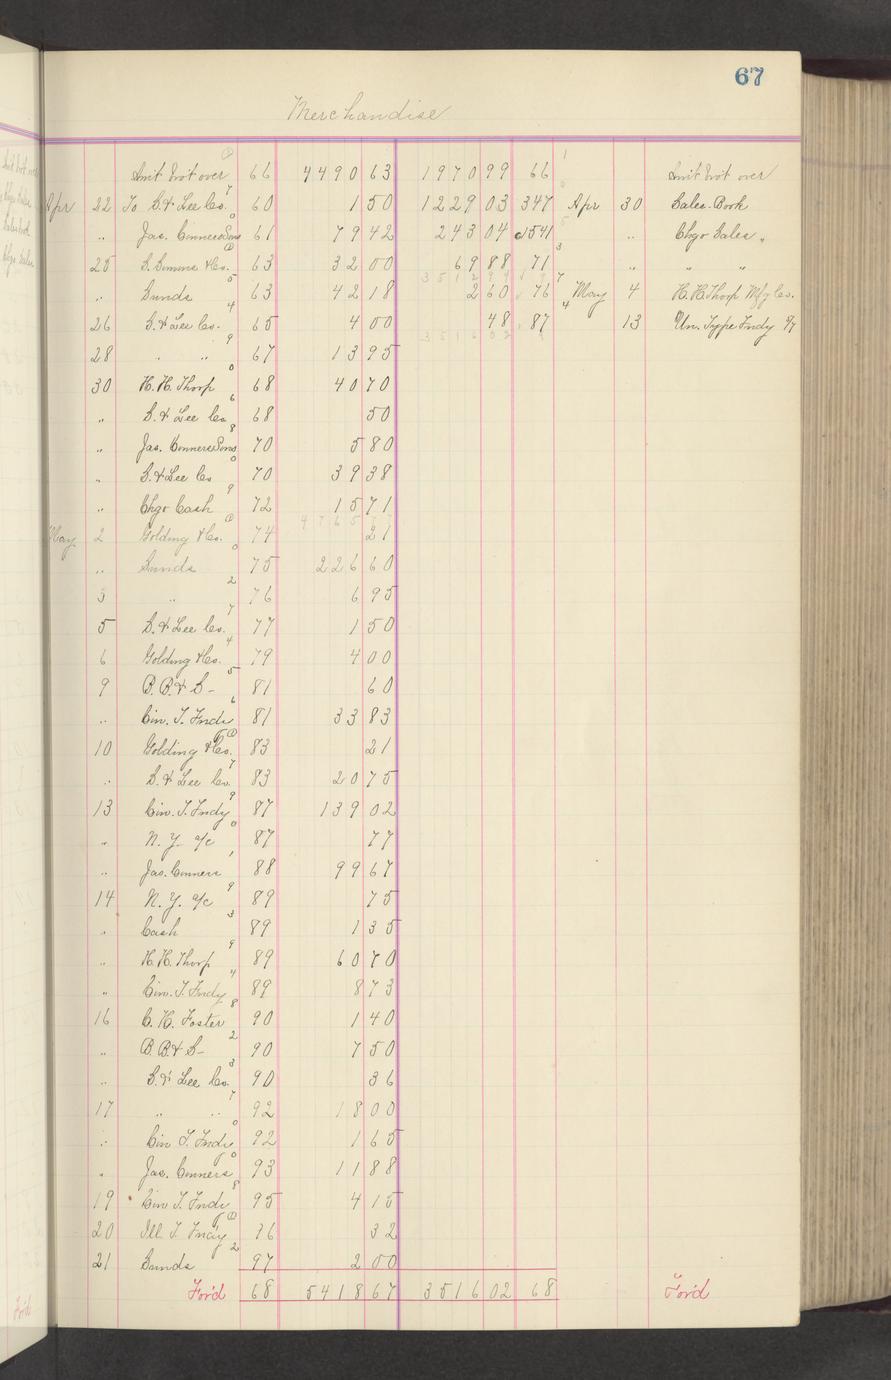 67
Merchandise
Amt brot over 66 4490 63 1970 99 66 Amt brot over
Apr 22 To B. & Lee Co. 60 1 50 1229 03 347 Apr 30 Sales Book
" Jas. Conners Sons 61 79 42 243 04 541 " Chgo Sales "
25 S. Simons & Co. 63 32 00 69 88 71 " "
" Sunds 63 42 18 2 60 76 May 4 H. H. Thorp Mfg Co.
26 B. & Lee Co. 65 4 00 48 87 13 Un. Type Fndy
28 " " 67 13 95
30 H. H. Thorp 68 40 70
" B. & Lee Co 68 50
" Jas. Conners Sons 70 5 80
" B. & Lee Co 70 39 38
" Chgo Cash 72 15 71
May 2 Golding & Co. 74 21
" Sunds 75 226 60
3 " 76 6 95
5 B. & Lee Co. 77 1 50
6 Golding & Co. 79 4 00
9 B. B. & S- 81 60
" Cin. T. Fndy 81 33 83
10 Golding & Co. 83 21
" B. & Lee Co. 83 20 75
13 Cin. T. Fndy 87 139 02
" N. Y. a/c 87 77
" Jas. Conners 88 99 67
14 N. Y. a/c 89 75
" Cash 89 1 35
" H. H. Thorp 89 60 70
" Cin. T. Fndy 89 8 73
16 C. H. Foster 90 1 40
" B. B. & S- 90 7 50
" B. & Lee Co. 90 36
17 " " 92 18 00
" Cin T. Fndy 92 1 65
" Jas. Conners 93 11 88
19 Cin T. Fndy 95 4 15
20 Ill. T. Fndy 96 32
21 Sunds 97 2 00
For'd 68 5418 67 3516 02 68 For'd